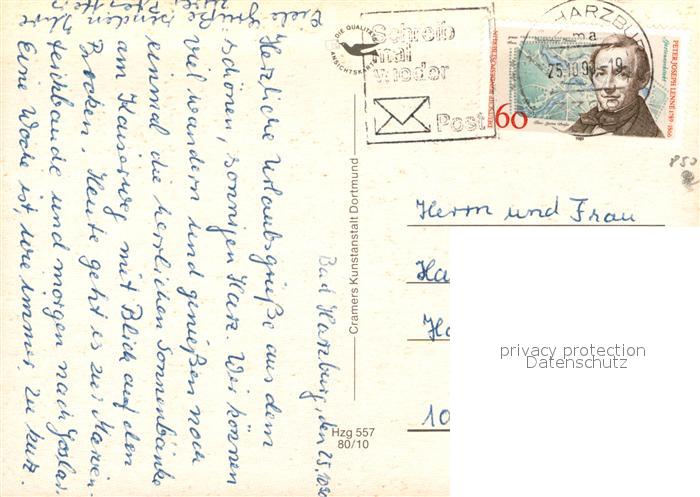 Bad Harzburg, den 25.10.90
Herzliche Urlaubsgrüße aus dem
schönen, sonnigen Harz. Wir können
viel wandern und genießen noch
einmal die herrlichen Sonnenbänke
am Kaiserweg mit Blick auf den
Brocken. Heute geht es zur Marien-
teichbaude und morgen nach Goslar.
Eine Woche ist, wie immer, zu kurz.
Viele Grüße senden Ihre
DIE QUALITÄTS
ANSICHTSKARTE
Cramers Kunstanstalt Dortmund
Hzg 557
80/10
Schreib
mal
wieder
Post
HARZBURG
ma
25.10.9 -19
60
DEUTSCHE BUNDESPOST BERLIN
PETER JOSEPH LENNÉ 1789-1866
Gartenarchitekt
850
Herrn und Frau
Ha
Ha
10
privacy protection
Datenschutz